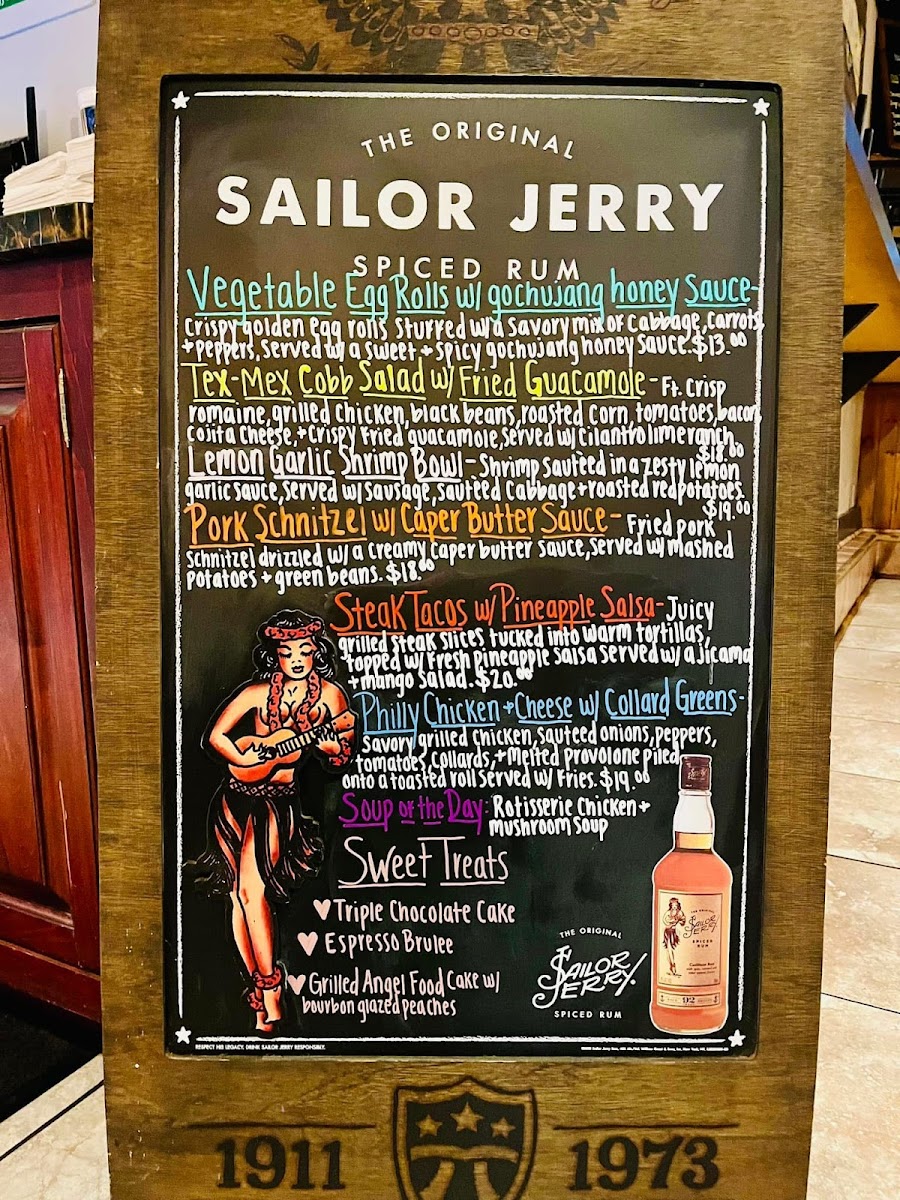 THE ORIGINAL
SAILOR JERRY
SPICED RUM
Vegetable Egg Rolls w/ gochujang honey Sauce-
crispy golden egg rolls stuffed w/ a savory mix of cabbage, carrots,
+ peppers, served w/ a sweet + spicy gochujang honey sauce. $13.00
Tex-Mex Cobb Salad w/ Fried Guacamole - Ft. Crisp
romaine, grilled chicken, black beans, roasted corn, tomatoes, bacon,
cojita cheese, + crispy fried guacamole, served w/ cilantro lime ranch.
$18.00
Lemon Garlic Shrimp Bowl - Shrimp sauteed in a zesty lemon
garlic sauce, served w/ sausage, sauteed cabbage + roasted red potatoes.
$19.00
Pork Schnitzel w/ Caper Butter Sauce - Fried pork
schnitzel drizzled w/ a creamy caper butter sauce, served w/ mashed
potatoes + green beans. $18.00
Steak Tacos w/ Pineapple Salsa - Juicy
grilled steak slices tucked into warm tortillas,
topped w/ fresh pineapple salsa served w/ a jicama
+ mango salad. $20.00
Philly Chicken + Cheese w/ Collard Greens -
Savory grilled chicken, sauteed onions, peppers,
tomatoes, collards, + melted provolone piled
onto a toasted roll served w/ fries. $19.00
Soup of the Day: Rotisserie Chicken +
mushroom soup
Sweet Treats
♥ Triple Chocolate Cake
♥ Espresso Brulee
♥ Grilled Angel Food Cake w/
bourbon glazed peaches
THE ORIGINAL
SAILOR
JERRY
SPICED RUM
THE ORIGINAL
SAILOR
JERRY
SPICED
RUM
92
RESPECT HIS LEGACY. DRINK SAILOR JERRY RESPONSIBLY.
1911 1973